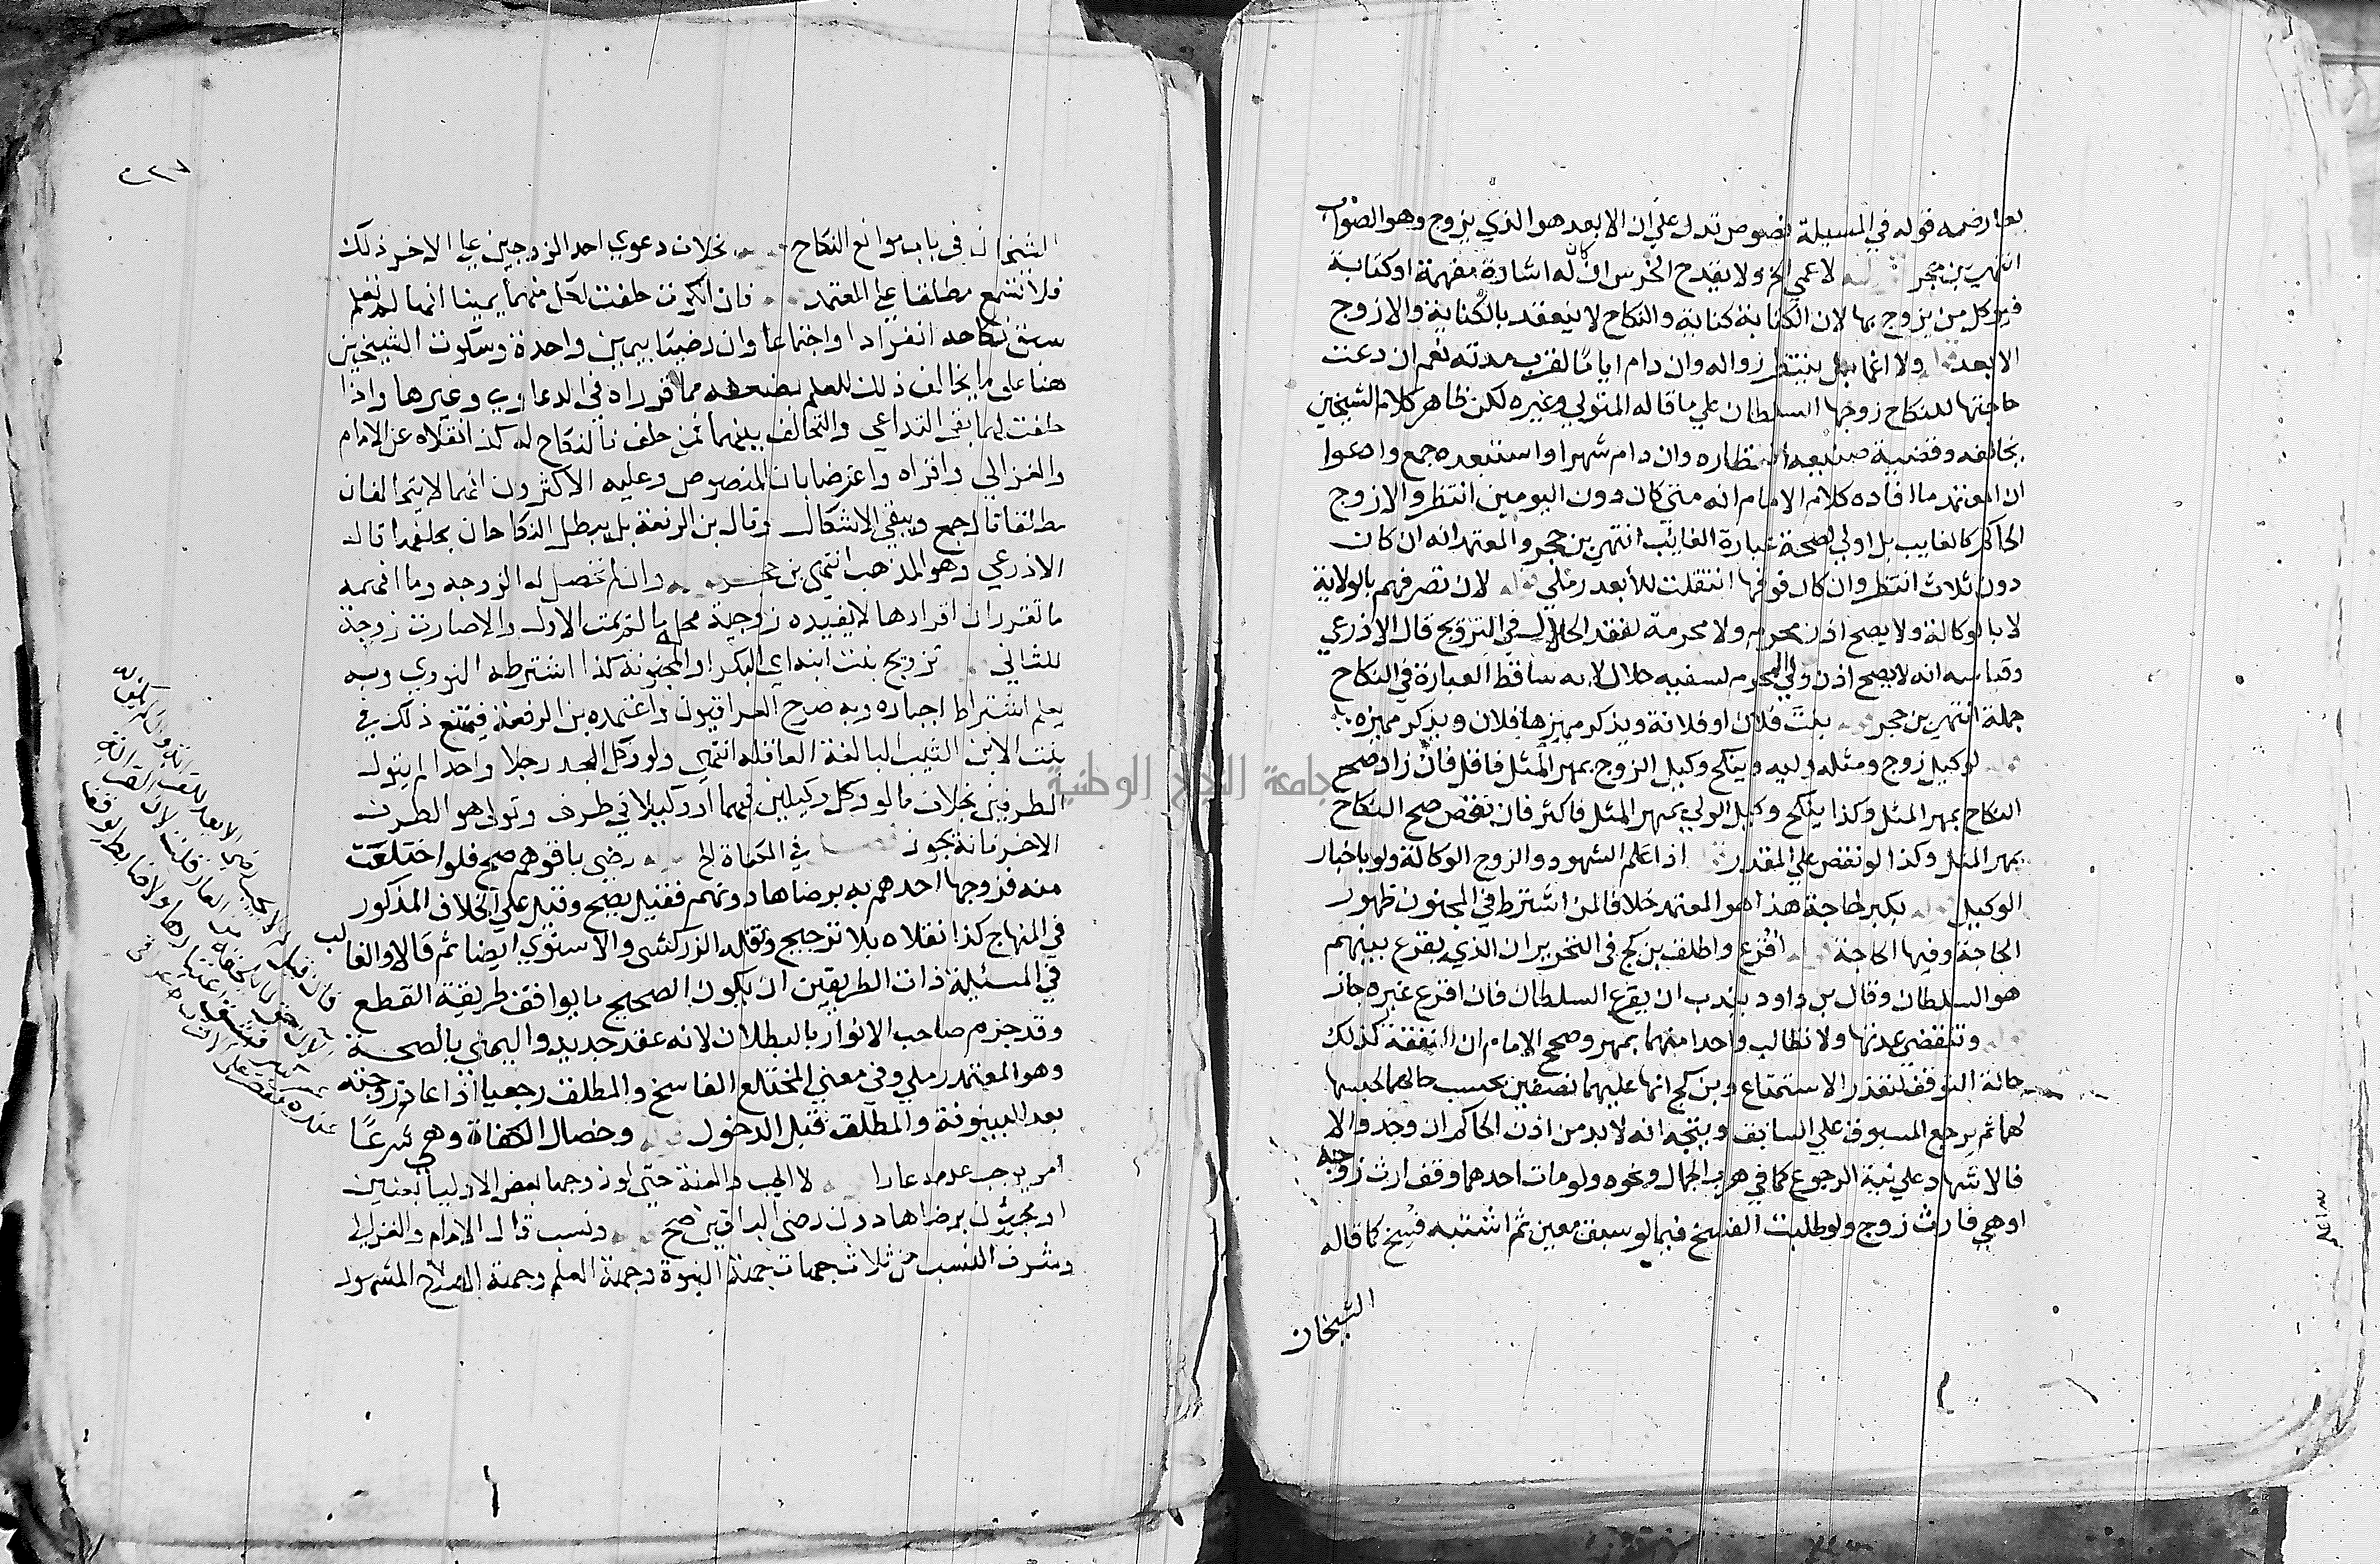 يعارضه قوله في المسيلة نصوص تدل علي ان الابعد هو الذي يزوج وهو الصواب
انتهي بن حجر لا عمي الخ ولا يقدح الخرس ان كان له اشارة مفهمة او كتابة
فيوكل من يزوج بها لان الكتابة كناية والنكاح لا ينعقد بالكناية والا زوج
الابعد ولا اغما بل ينتظر زواله وان دام اياما لقرب مدته نعم ان دعت
حاجتها للنكاح زوجها السلطان علي ما قاله المتولي وغيره لكن ظاهر كلام الشيخين
يخالفه وقضية انتظاره وان دام شهرا واستبعده جمع وادعوا
ان المعتمد ما افاده كلام الامام انه متي كان دون اليومين انتظر والا زوج
الحاكم كالغايب بل اولي لصحة عبارة الغايب انتهي بن حجر والمعتمد انه ان كان
دون ثلاث انتظر وان كان فوقها انتقلت للأبعد رملي لان تصرفهم بالولاية
لا بالوكالة ولا يصح اذن محرم ولا محرمة لفقد الحلال في التزويج قال الاذرعي
وقياسه انه لا يصح اذن ولي المحرم لسفيه حلال لانه ساقط العبارة في النكاح
جملة انتهي بن حجر بنت فلان او فلانة ويذكر مميزها فلان ويذكر مميزه
لوكيل زوج ومثله وليه وينكح وكيل الزوج بمهر المثل فاقل فان زاد صح
النكاح بمهر المثل وكذا ينكح وكيل الولي بمهر المثل فاكثر فان نقص صح النكاح
بمهر المثل وكذا لو نقص علي المقدر اذا علم الشهود والزوج الوكالة ولو باخبار
الوكيل بكبر لحاجة هذا هو المعتمد خلافا لمن اشترط في المجنون ظهور
الحاجة وفيها الحاجة اقرع واطلف بن كج في التحرير ان الذي يقرع بينهم
هو السلطان وقال بن داود يندب ان يقرع السلطان فان اقرع غيره جاز
وتنقضي عدتها ولا تطالب واحدا منهما بمهر وصحح الامام ان النفقة كذلك
حالة التوقف لتعذر الاستمتاع وبن كج انها عليهما نصفين بحسب حالهما لحبسها
لهما ثم يرجع المسبوق علي السابق ويتجه انه لا بد من اذن الحاكم ان وجد والا
فالاشهاد علي نية الرجوع كما في هرب الجمال ونحوه ولو مات احدهما وقف ارث زوجه
او هي فارث زوج ولو طلبت الفسخ فيما لو سبق معين ثم اشتبه فسخ كما قاله
الشيخان
الشيخان في باب موانع النكاح بخلاف دعوي احد الزوجين علي الاخر ذلك
فلا تسمع مطلقا علي المعتمد فان انكرت حلفت لكل منهما يمينا انها لم تعلم
سبق نكاحه انفرادا واجتماعا وان رضيتا بيمين واحدة وسكوت الشيخين
هنا علي ما يخالف ذلك للعلم بضعفه مما قرراه في الدعاوي وغيرها واذا
حلفت لهما بقي التداعي والتحالف بينهما فمن حلف فالنكاح له كذا نقلاه عن الامام
والغزالي واقراه واعترضا بان المنصوص وعليه الاكثرون انهما لا يتحالفان
مطلقا قال جمع ويبقي الاشكال وقال بن الرفعة بل يبطل النكاحان بحلفها قال
الاذرعي وهو المذهب انتهي بن حجر وان لم تحصل له الزوجه وما افهمه
ما تقرر ان اقرارها لا يفيده زوجية محله ما لم تمت الاول والا صارت زوجة
للثاني تزويج بنت ابنه اي البكر او المجنونة كذا اشترطه النووي وبه
يعلم اشتراط اجباره وبه صرح العراقيون واعتمده بن الرفعة فيمتنع ذلك في
بنت الابن الثيب البالغة العاقله انتهي ولو وكل الجد رجلا واحدا لم يتول
الطرفين بخلاف ما لو وكل وكيلين فيهما او وكيلا في طرف وتولي هو الطرف
الاخر فانه يجوز في الكفاة الخ رضي باقوهم صح فلو اختلعت
منه فزوجها احدهم به برضاها دونهم فقيل يصح وقيل علي الخلاف المذكور
في المنهاج كذا نقلاه بلا ترجيح ونقله الزركشي والاسنوي ايضا ثم قالا والغالب
في المسيلة ذات الطريقين ان يكون الصحيح ما يوافق طريقة القطع
وقد جزم صاحب الانوار بالبطلان لانه عقد جديد واليمني بالصحة
وهو المعتمد رملي وفي معني المختلع الفاسخ والمطلف رجعيا اذا عاد زوجته
بعد البينونة والمطلق قبل الدخول وخصال الكفاة وهي شرعًا
امر يوجب عدمه عارا لا الجب والعنة حتي لو زوجها بعض الاوليا بعنين
او مجبوب برضاها دون رضي الباقين صح ونسب قال الامام والغزالي
وشرف النسب من ثلاث جهات جهة النبوة وجهة العلم وجهة الصلاح المشهور
جامعة النجاح الوطنية